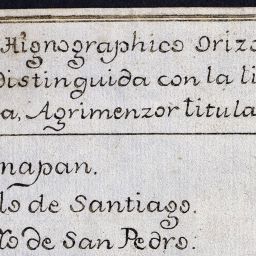 Hignographico Orizo
distinguida con la li
a, Agrimenzor titula
napan.
lo de Santiago.
llo de San Pedro.